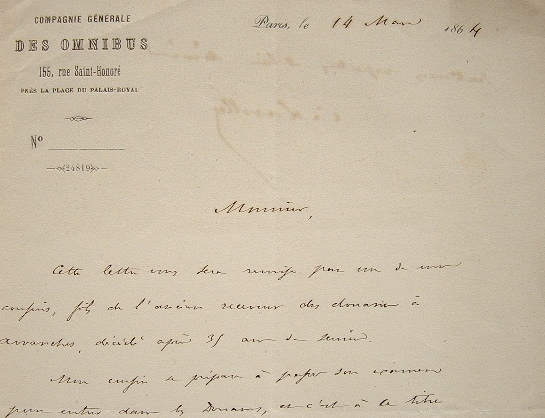 COMPAGNIE GÉNÉRALE
DES OMNIBUS
155, rue Saint-Honoré
PRÈS LA PLACE DU PALAIS-ROYAL
N°
24819
Paris, le 14 Mars 1864
Monsieur,
Cette lettre vous sera remise par un de mes
cousins, fils de l'ancien receveur des douanes à
avranches, décédé après 35 ans de service.
Mon cousin se prépare à passer son examen
pour entrer dans les Douanes, et c'est à ce titre